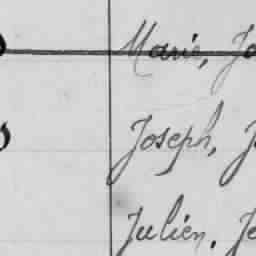 Marie, Jo
Joseph, J
Julien, Je